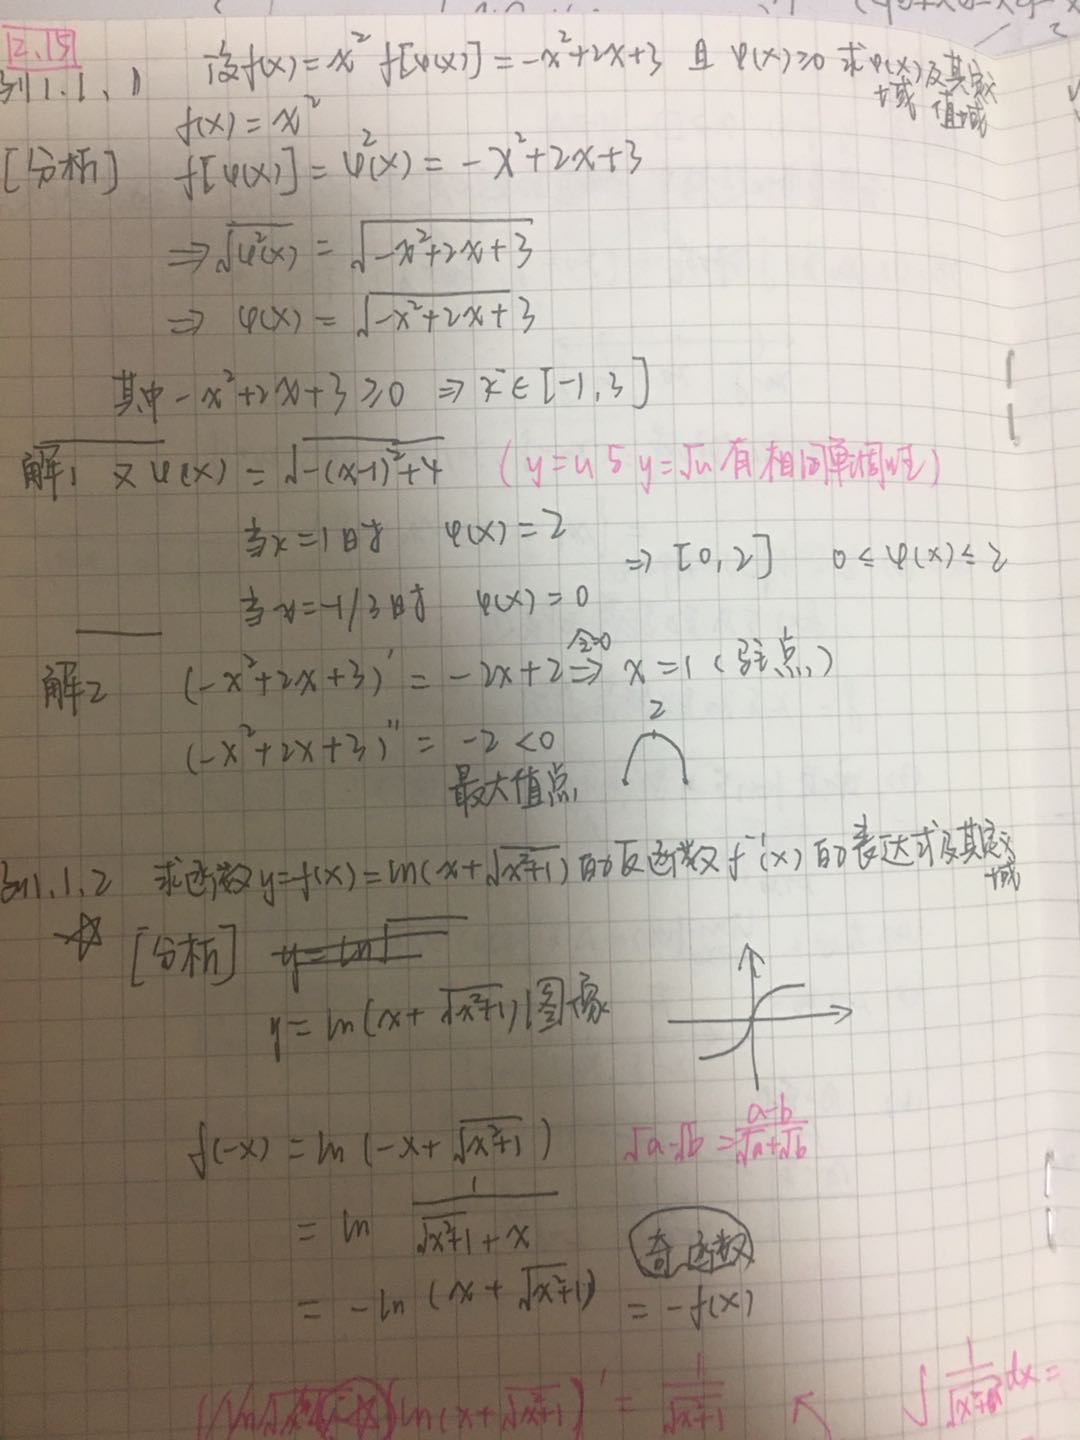 2.15
例1.1.1 设f(x)=x² f[φ(x)]=-x²+2x+3 且 φ(x)≥0 求φ(x)及其定义域 值域
f(x)=x²
[分析] f[φ(x)]=φ²(x)=-x²+2x+3
⇒√φ²(x) = √-x²+2x+3
⇒ φ(x) = √-x²+2x+3
其中-x²+2x+3≥0 ⇒ x∈[-1,3]
解1 又φ(x) = √-(x-1)²+4 (y=u与y=√u有相同单调性)
当x=1时 φ(x)=2
⇒ [0,2] 0≤φ(x)≤2
当x=-1/3时 φ(x)=0
解2 (-x²+2x+3)' = -2x+2 令=0 ⇒ x=1 (驻点)
(-x²+2x+3)'' = -2<0
2
最大值点
例1.1.2 求函数y=f(x)=ln(x+√x²+1)的反函数f⁻¹(x)的表达式及其定义域
☆ [分析] y=ln
y=ln(x+√x²+1)图像
f(-x) = ln(-x+√x²+1) √a-√b = a-b/√a+√b
= ln 1/√x²+1+x 奇函数
= -ln(x+√x²+1) = -f(x)
(ln(x+√x²+1))' = 1/√x²+1 ↖ ∫ dx=